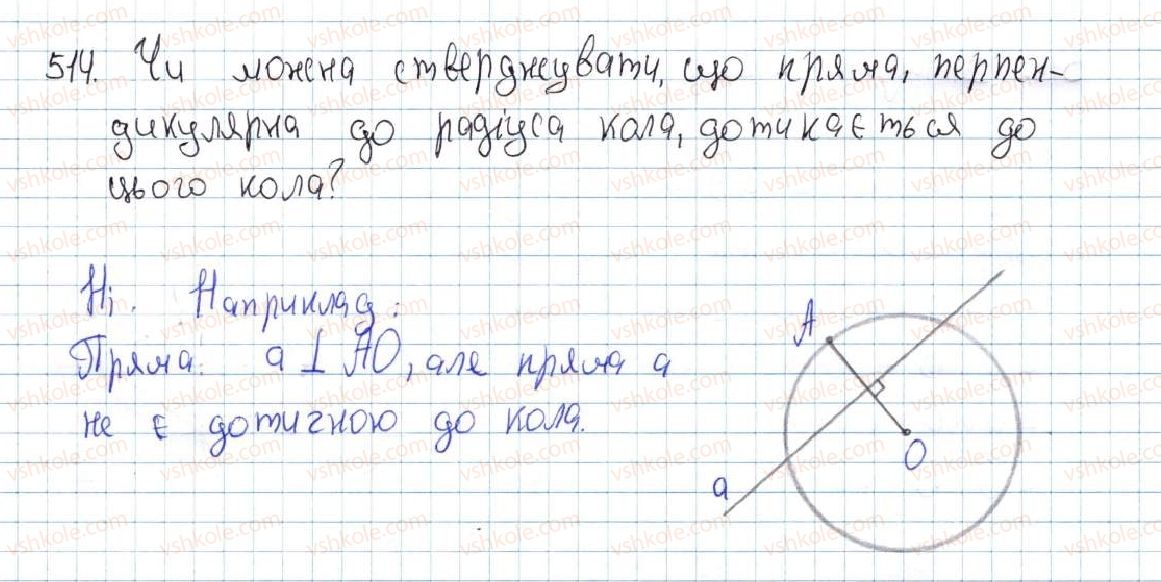 514. Чи можна стверджувати, що пряма, перпен-
дикулярна до радіуса кола, дотикається до
цього кола?
Ні. Наприклад:
Пряма: a ⊥ AO, але пряма a
не є дотичною до кола.
A
O
a
vshkole.com